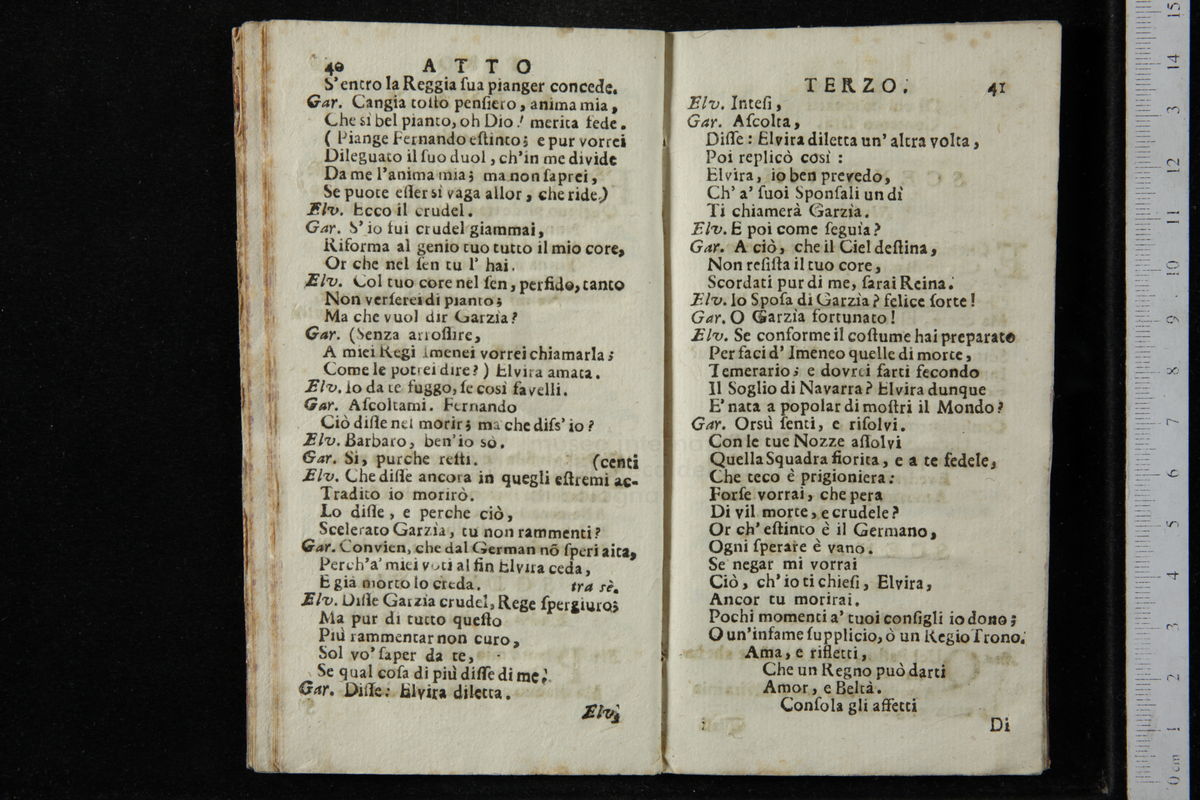 40 ATTO
S'entro la Reggia ſua pianger concede.
Gar. Cangia toſto penſiero, anima mia,
Che sì bel pianto, oh Dio! merita fede.
( Piange Fernando eſtinto; e pur vorrei
Dileguato il ſuo duol, ch'in me divide
Da me l'anima mia; ma non ſaprei,
Se puote eſſer sì vaga allor, che ride.)
Elv. Ecco il crudel.
Gar. S'io fui crudel giammai,
Riforma al genio tuo tutto il mio core,
Or che nel ſen tu l' hai.
Elv. Col tuo core nel ſen, perfido, tanto
Non verſerei di pianto;
Ma che vuol dir Garzìa?
Gar. (Senza arroſſire,
A miei Regi Imenei vorrei chiamarla;
Come le potrei dire?) Elvira amata.
Elv. Io da te fuggo, ſe così favelli.
Gar. Aſcoltami. Fernando
Ciò diſſe nel morir; ma che diſs' io?
Elv. Barbaro, ben'io sò.
Gar. Si, purche reſti. (centi
Elv. Che diſſe ancora in quegli eſtremi ac-
Tradito io morirò.
Lo diſſe, e perche ciò,
Scelerato Garzìa, tu non rammenti?
Gar. Convien, che dal German nõ ſperi aita,
Perch'a' miei voti al fin Elvira ceda,
E già morto lo creda. tra sè.
Elv. Diſſe Garzia crudel, Rege ſpergiuro;
Ma pur di tutto queſto
Più rammentar non curo,
Sol vo' ſaper da te,
Se qual coſa di più diſſe di me?
Gar. Diſſe: Elvira diletta.
Elv.
TERZO. 41
Elv. Inteſi,
Gar. Aſcolta,
Diſſe: Elvira diletta un' altra volta,
Poi replicò così:
Elvira, io ben prevedo,
Ch' a' ſuoi Sponſali un dì
Ti chiamerà Garzìa.
Elv. E poi come ſeguìa?
Gar. A ciò, che il Ciel deſtina,
Non reſiſta il tuo core,
Scordati pur di me, ſarai Reina.
Elv. Io Spoſa di Garzìa? felice ſorte!
Gar. O Garzìa fortunato!
Elv. Se conforme il coſtume hai preparato
Per faci d' Imeneo quelle di morte,
Temerario; e dovrei farti fecondo
Il Soglio di Navarra? Elvira dunque
E' nata a popolar di moſtri il Mondo?
Gar. Orsù ſenti, e riſolvi.
Con le tue Nozze aſſolvi
Quella Squadra fiorita, e a te fedele,
Che teco è prigioniera:
Forſe vorrai, che pera
Di vil morte, e crudele?
Or ch' eſtinto è il Germano,
Ogni ſperare è vano.
Se negar mi vorrai
Ciò, ch' io ti chieſi, Elvira,
Ancor tu morirai.
Pochi momenti a' tuoi conſigli io dono;
O un'infame ſupplicio, ò un Regio Trono.
Ama, e rifletti,
Che un Regno può darti
Amor, e Beltà.
Conſola gli affetti
Di